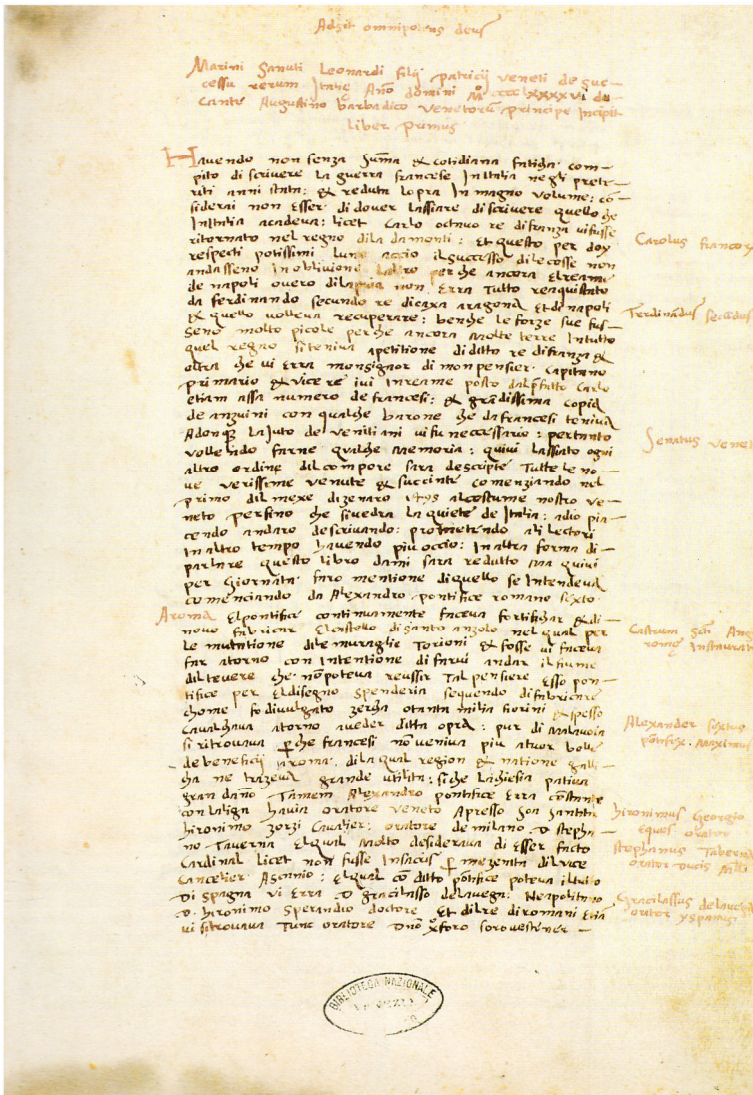 Adsit omnipotens deus
Marini Sanuti Leonardi filij patricij veneti de suc-
cessu rerum Italie Ano domini M cccclxxxxvi du-
cante Augustino barbadico venetoru principe Incipit
liber Primus
Havendo non senza suma & cotidiana fatigha com-
pito di scrivere la guerra francese In Italia negli prete-
riti anni stata: & reduta lopra In magno volume: co-
siderai non esser di dover lassiare di scrivere quello che
In Italia acadeva: licet Carlo octavo re di franza vi fusse
ritornato nel regno di la da monti: Et questo per doy
respecti potissimi luno accio il successo di le cosse non
andasseno In oblivione laltro per che ancora El reame
de napoli overo di la non Erra tutto reaquistato
da ferdinando secundo re di caxa aragona Et di napoli
& quello volleva recuperare: benche le forze sue fus-
seno molto picole perche ancora molte terre In tutto
quel regno si teniva a petitione di ditto re di franza &
oltra che vi Erra monsignor di monpensier Capitano
primario & vice re ivi In reame posto dal pfatto Carlo
etiam assa numero de francesi: & grandissima copia
de anzuini con qualche barone che da francesi teniva
Adonq la juto de venitiani vi fu neccessario: pertanto
vollendo farne qualche memoria: quivi lassiato ogni
altro ordine dil compore sara descripte tutte le no-
ve verissime venute & succinte comenziando nel
primo dil mexe di zenaro 1495 al costume nostro ve-
neto perfino che si vedra la quiete de Italia: a dio pia-
cendo andaro descrivando: prometendo a li lectori
In altro tempo havendo piu occio: In altra forma di-
parlare questo libro da mi sara redutto ma quivi
per giornata faro mentione di quello se Intendeva
comenciando da Alexandro pontifice romano sexto
A roma El pontifice continuamente faceva fortifichar & di
novo fabricar El castello di santo anzolo nel qual per
le mutatione di le muraglie Torioni & fosse vi faceva
far atorno con Intentione di farvi andar il fiume
dil tevere che non poteva reussir Tal pensiere Esso pon-
tifice per El disegno spenderia sequendo di fabricare
chome fo divulgato zercha otanta milia fiorini & spesso
cavalchava atorno a veder ditta opra: pur di malavoia
si ritrovava perche francesi no veniva piu a tuor bolle
de beneficij a roma. di la qual region & natione galli-
cha ne trazeva grande utilita: siche la chiesia pativa
gran dano Tamen Alexandro pontifice Erra constante
con la liga havia oratore veneto Apresso Soa Santita
hironimo zorzi Cavalier: oratore de milano D stepha-
no Taverna El qual molto desiderava di Esser facto
Cardinal licet non fusse In sacris p mezenita dil vice
Cancelier Ascanio: El qual co ditto potifice poteva il tutto
Di spagna vi Erra D gracilasso de la vega: Neapolitano
D. hironimo sperandio doctore Et dil re di romani Etia
vi si trovava Tunc oratore Dno xforo
Carolus francor
Ferdinadus secudus
Senatus venet
Castrum scti Ang
rome Instaurat
Alexander sextus
pontifex. maximus
hironimus Georgio
Eques orator
stephanus Taberna
orator ducis mlli
Gracilassus de lavega
orator yspanus
BIBLIOTECA NAZIONALE
VENEZIA